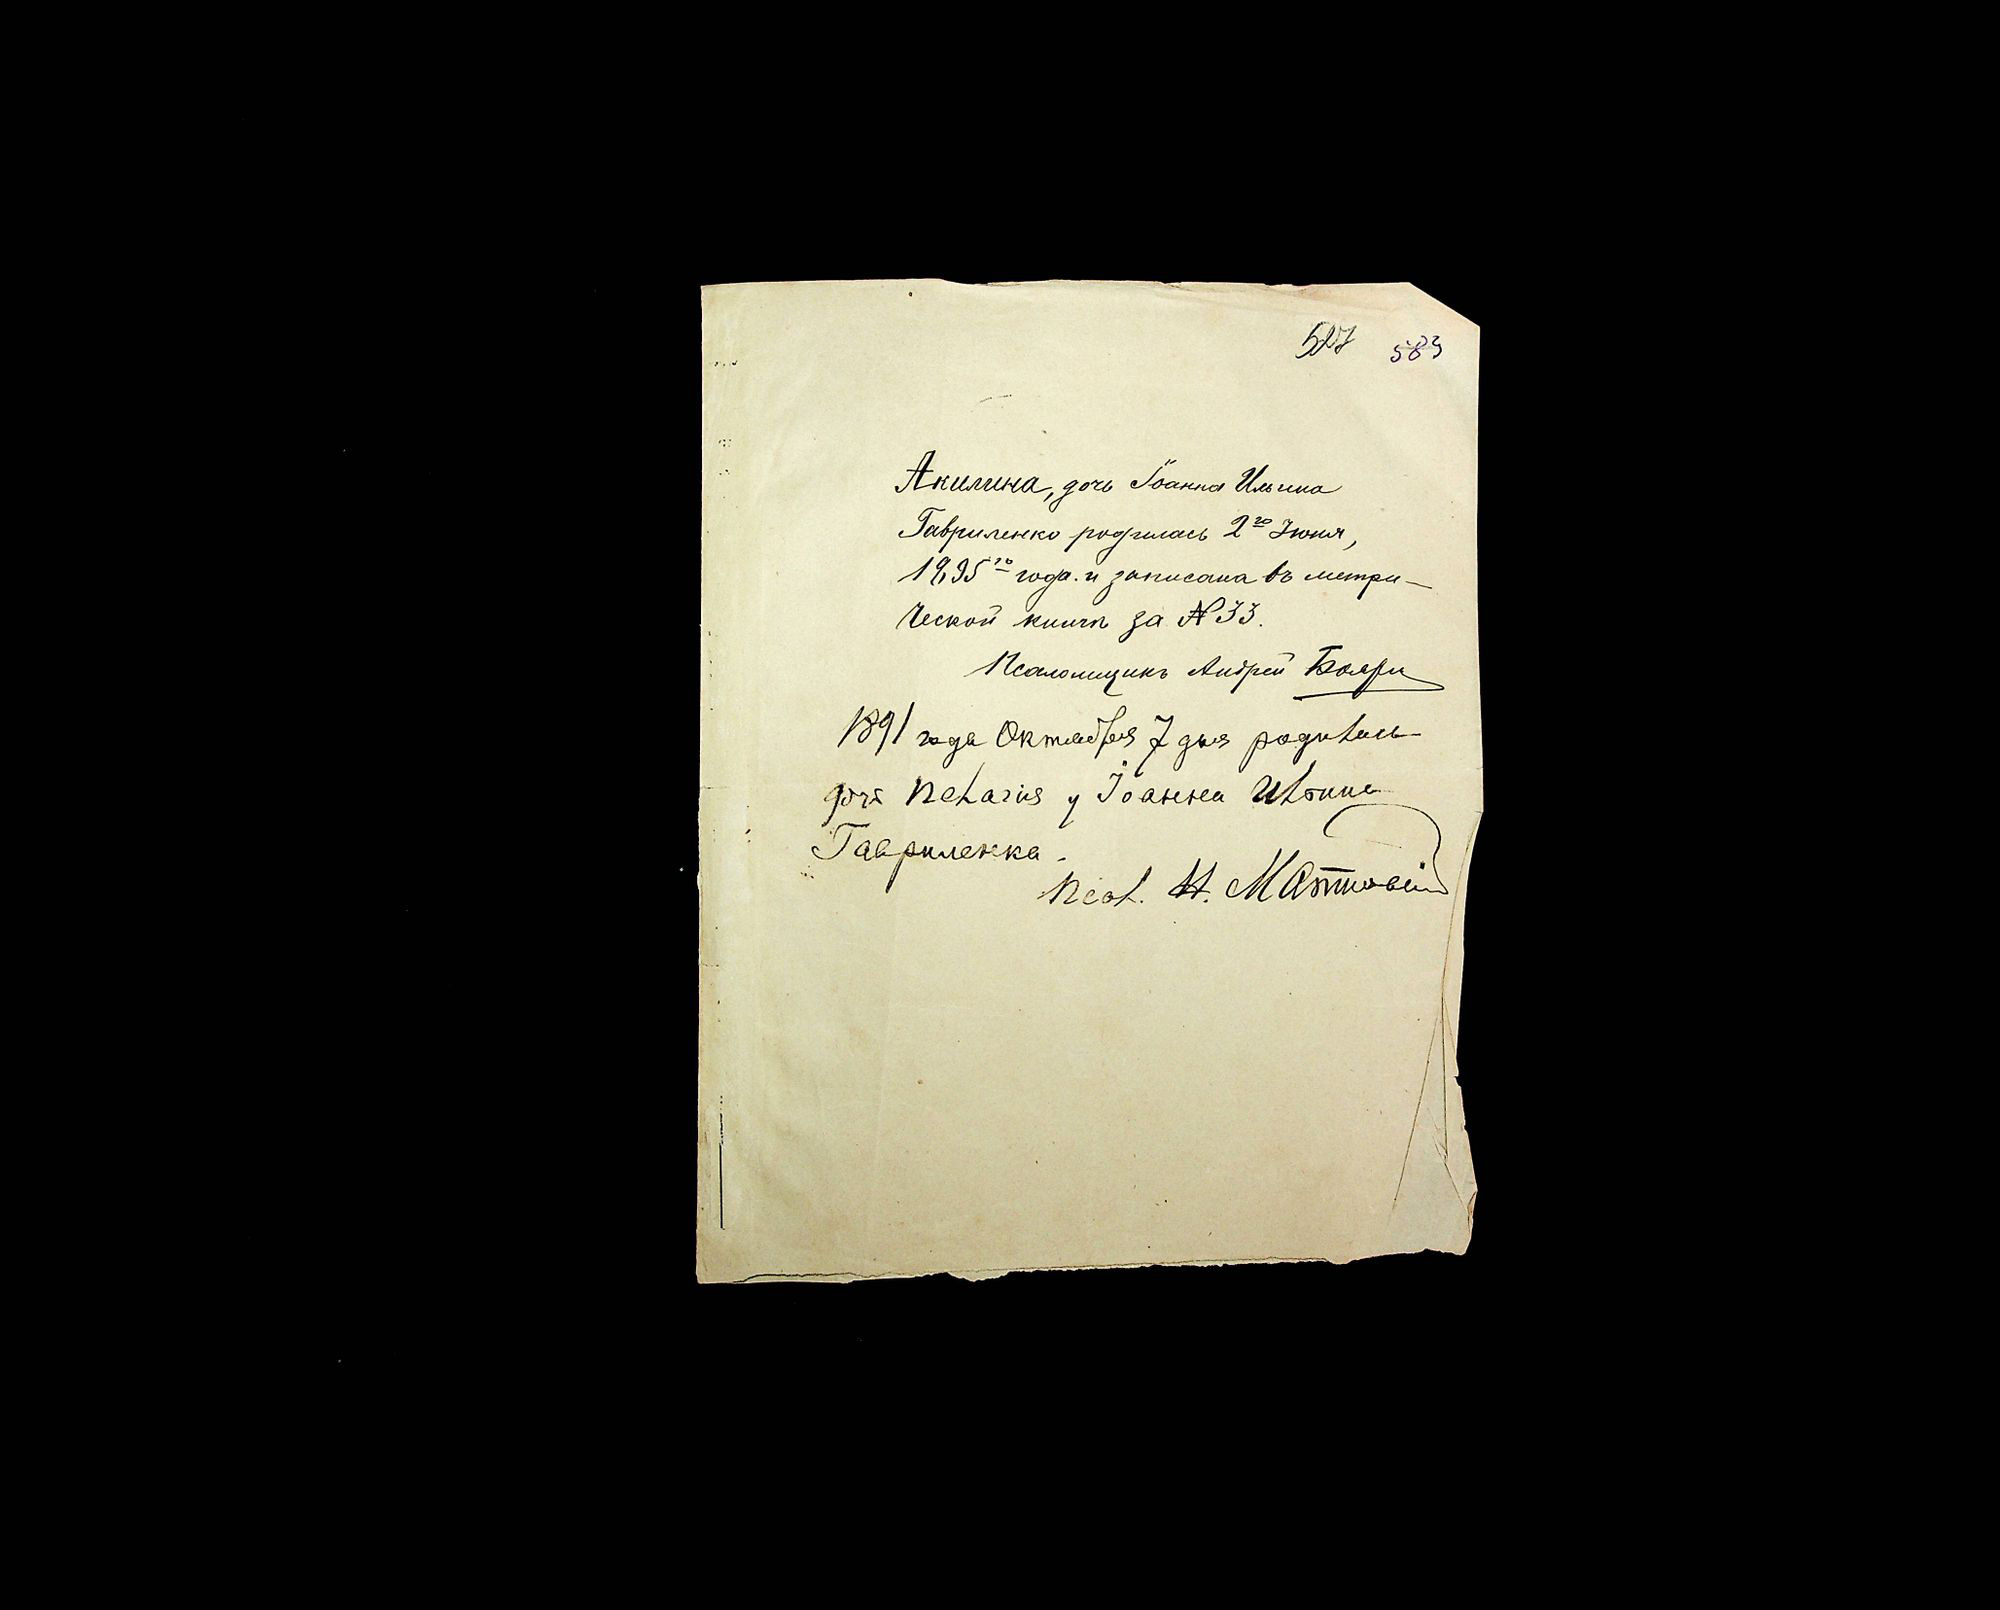 527 583
Акилина, дочь Іоанна Ильина
Гавриленко родилась 2го Іюня,
1895го года. и записана въ метри-
ческой книгѣ за № 33.
Псаломщикъ Андрей
1891 года Октября 7 дня родилась
дочь Пелагія у Іоанна Ильина
Гавриленка.
Псал. Н.